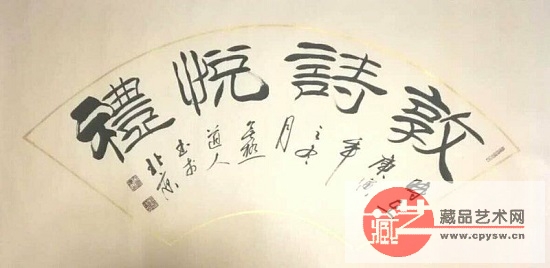 敦詩悅禮
庚寅
年
月
道人
書於
北京
藏
藏品艺术网
www.cpysw.cn